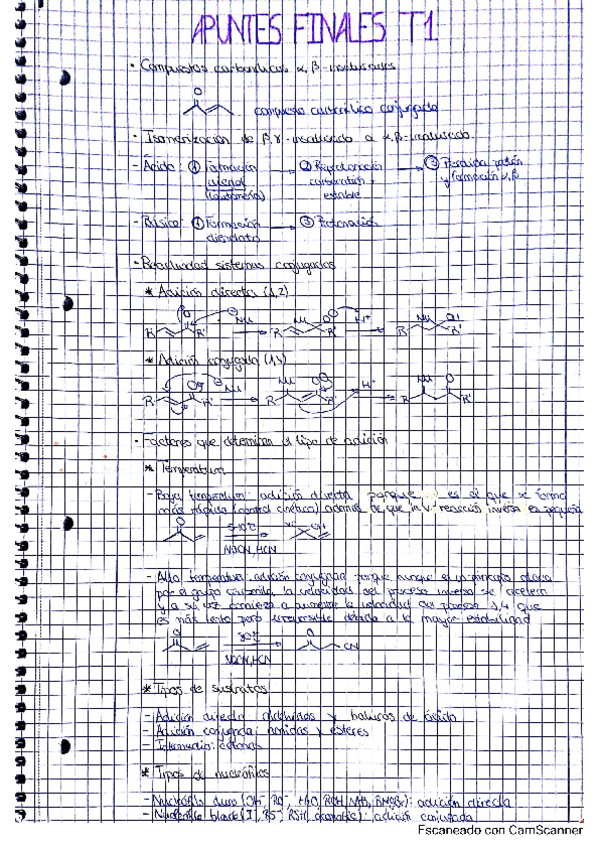 APUNTES FINALES T1
· Compuestos carbonílicos α, β-insaturados
O
compuesto carbonílico conjugado
· Isomerización de β,γ-insaturado a α,β-insaturado
- Ácido: ① Formación dienol (tautomería) → ② Reprotonación carbocatión + estable → ③ Pérdida protón y formación α,β
- Básico: ① Formación → ② Protonación
- Reactividad sistemas conjugados
* Adición directa (1,2)
R R' Nu R R' H⁺ R R'
* Adición conjugada (1,4)
R R' Nu R R' H⁺ R R'
· Factores que determinan el tipo de adición
* Temperatura
- Baja temperatura: adición directa porque es el que se forma
más rápido (control cinético) además de que la v. reacción inversa es pequeña
O 5-10°C
NaCN, HCN
- Alta temperatura: adición conjugada porque aunque en un principio
por el grupo carbonilo, la velocidad del proceso inverso se acelera
y a su vez comienza a aumentar la velocidad del proceso 1,4 que
es más lento pero irreversible debido a la mayor estabilidad
O 80°C O CN
NaCN, HCN
* Tipos de sustratos
- Adición directa: aldehídos y haluros de ácido
- Adición conjugada: amidas y ésteres
- Intermedio: cetonas
* Tipos de nucleófilos
- Nucleófilo duro (OH⁻, RO⁻, H₂O, ROH, NH₃, RMgBr): adición directa
- Nucleófilo blando (I⁻, RS⁻, RSH, ): adición conjugada
Escaneado con CamScanner